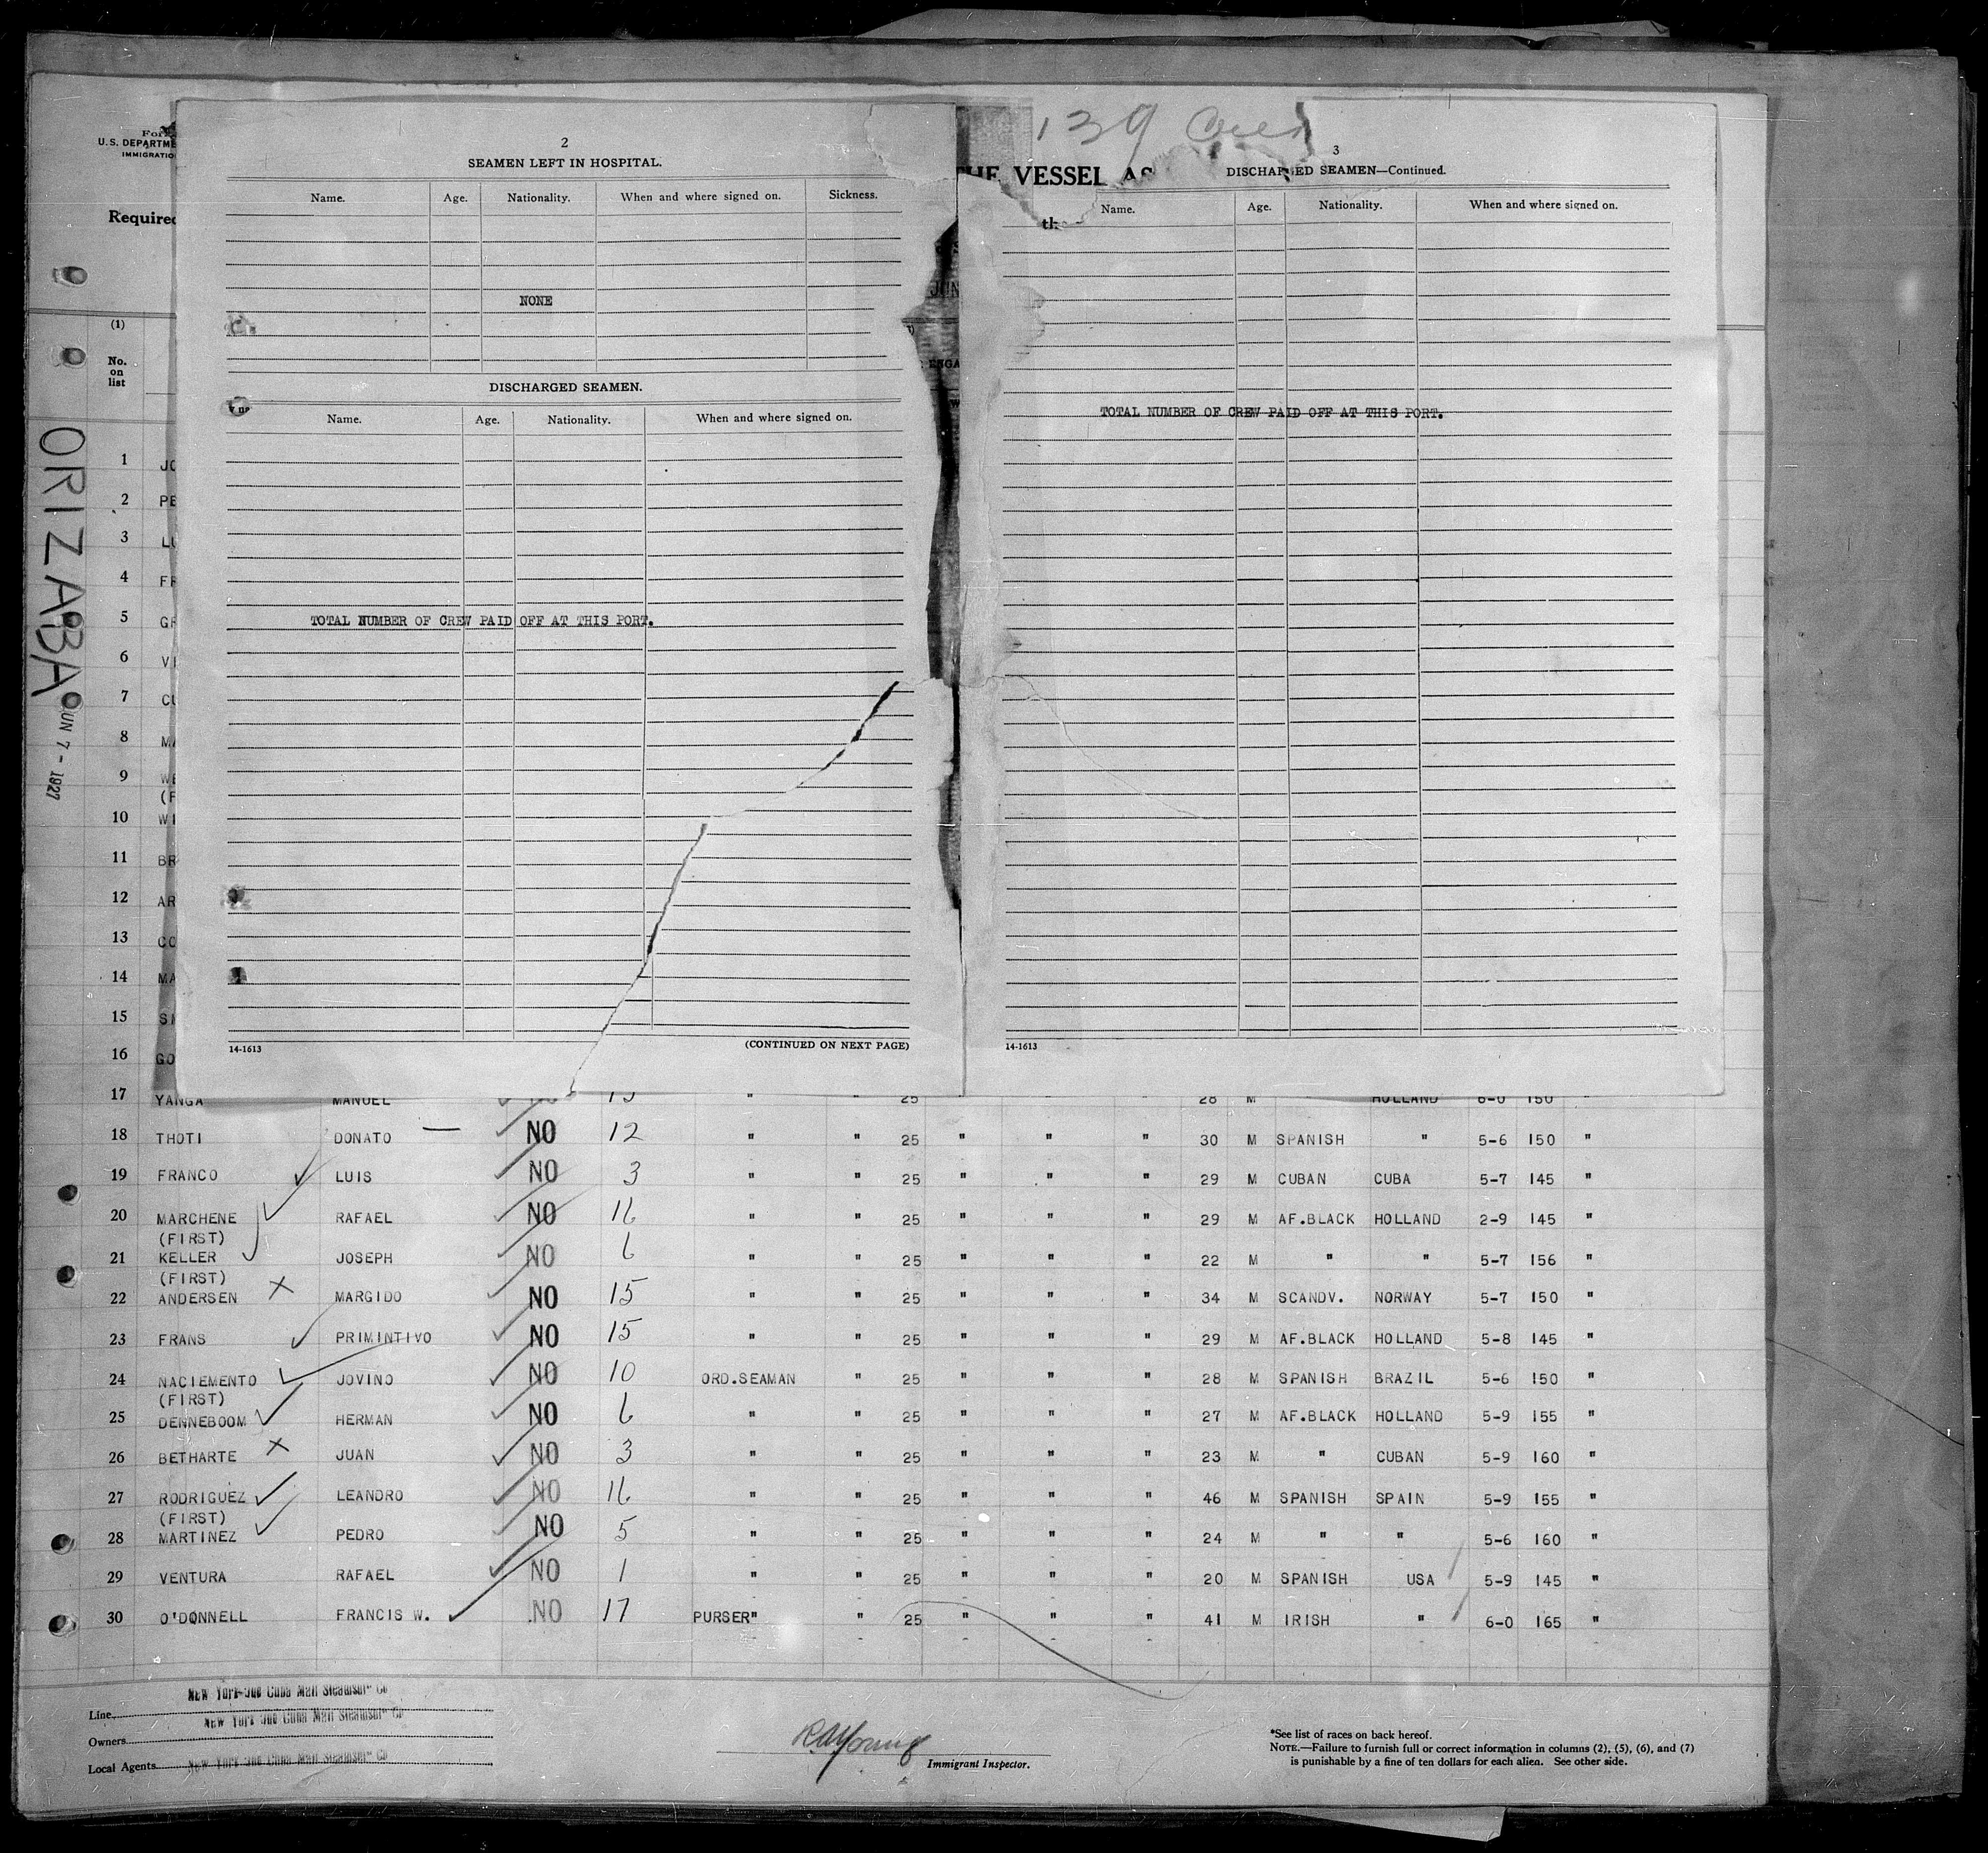 139 Crew
2
SEAMEN LEFT IN HOSPITAL.
Name. Age. Nationality. When and where signed on. Sickness.
NONE
DISCHARGED SEAMEN.
Name. Age. Nationality. When and where signed on.
TOTAL NUMBER OF CREW PAID OFF AT THIS PORT.
14-1613 (CONTINUED ON NEXT PAGE)
3
DISCHARGED SEAMEN—Continued.
Name. Age. Nationality. When and where signed on.
TOTAL NUMBER OF CREW PAID OFF AT THIS PORT.
14-1613
U.S. DEPARTME
IMMIGRATIO
THE VESSEL AS
Required
JUN
ENGA
(1)
No.
on
list
ORIZABA
JUN 7 - 1927
1 JO
2 PE
3 LU
4 FR
5 GR
6 VI
7 CU
8 MA
9 WE
(F
10 WI
11 BR
12 AR
13 CO
14 MA
15 SM
16 GO
17 YANGA MANUEL 15 " " 25 " " " 28 M HOLLAND 6-0 150 "
18 THOTI DONATO — NO 12 " " 25 " " " 30 M SPANISH " 5-6 150 "
19 FRANCO LUIS NO 3 " " 25 " " " 29 M CUBAN CUBA 5-7 145 "
20 MARCHENE RAFAEL NO 16 " " 25 " " " 29 M AF.BLACK HOLLAND 2-9 145 "
(FIRST)
21 KELLER JOSEPH NO 6 " " 25 " " " 22 M " " 5-7 156 "
(FIRST)
22 ANDERSEN X MARGIDO NO 15 " " 25 " " " 34 M SCANDV. NORWAY 5-7 150 "
23 FRANS PRIMINTIVO NO 15 " " 25 " " " 29 M AF.BLACK HOLLAND 5-8 145 "
24 NACIEMENTO JOVINO NO 10 ORD.SEAMAN " 25 " " " 28 M SPANISH BRAZIL 5-6 150 "
(FIRST)
25 DENNEBOOM HERMAN NO 6 " " 25 " " " 27 M AF.BLACK HOLLAND 5-9 155 "
26 BETHARTE X JUAN NO 3 " " 25 " " " 23 M " CUBAN 5-9 160 "
27 RODRIGUEZ LEANDRO NO 16 " " 25 " " " 46 M SPANISH SPAIN 5-9 155 "
(FIRST)
28 MARTINEZ PEDRO NO 5 " " 25 " " " 24 M " " 5-6 160 "
29 VENTURA RAFAEL NO 1 " " 25 " " " 20 M SPANISH USA 5-9 145 "
30 O'DONNELL FRANCIS W. NO 17 PURSER" " 25 " " " 41 M IRISH " 6-0 165 "
Line New York and Cuba Mail Steamship Co
Owners New York and Cuba Mail Steamship Co
Local Agents New York and Cuba Mail Steamship Co
RAYoung
Immigrant Inspector.
*See list of races on back hereof.
NOTE.—Failure to furnish full or correct information in columns (2), (5), (6), and (7)
is punishable by a fine of ten dollars for each alien. See other side.